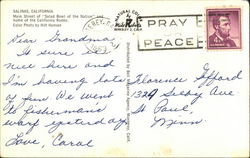 SALINAS, CALIFORNIA
Main Street of "Salad Bowl of the Nation" and
home of the California Rodeo.
Color Photo by
PRAY
FOR
PEACE
Dear Grandma,
It sure is
nice here and
I'm having lots
of fun. We went
to fishermans
warf yesterday.
Love, Carol
Florence Gifford
Ave
St. Paul,
Minn.